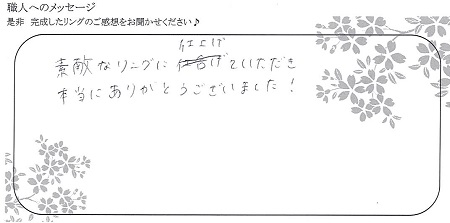 職人へのメッセージ
是非 完成したリングのご感想をお聞かせください♪
素敵なリングに仕上げていただき
本当にありがとうございました!